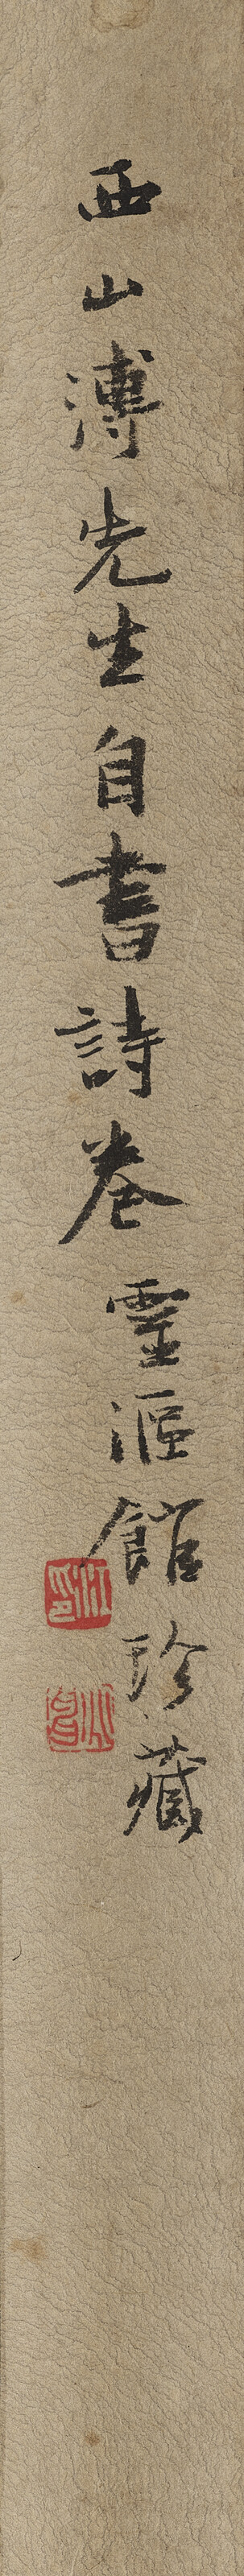 西山溥先生自書詩卷 靈漚館珍藏